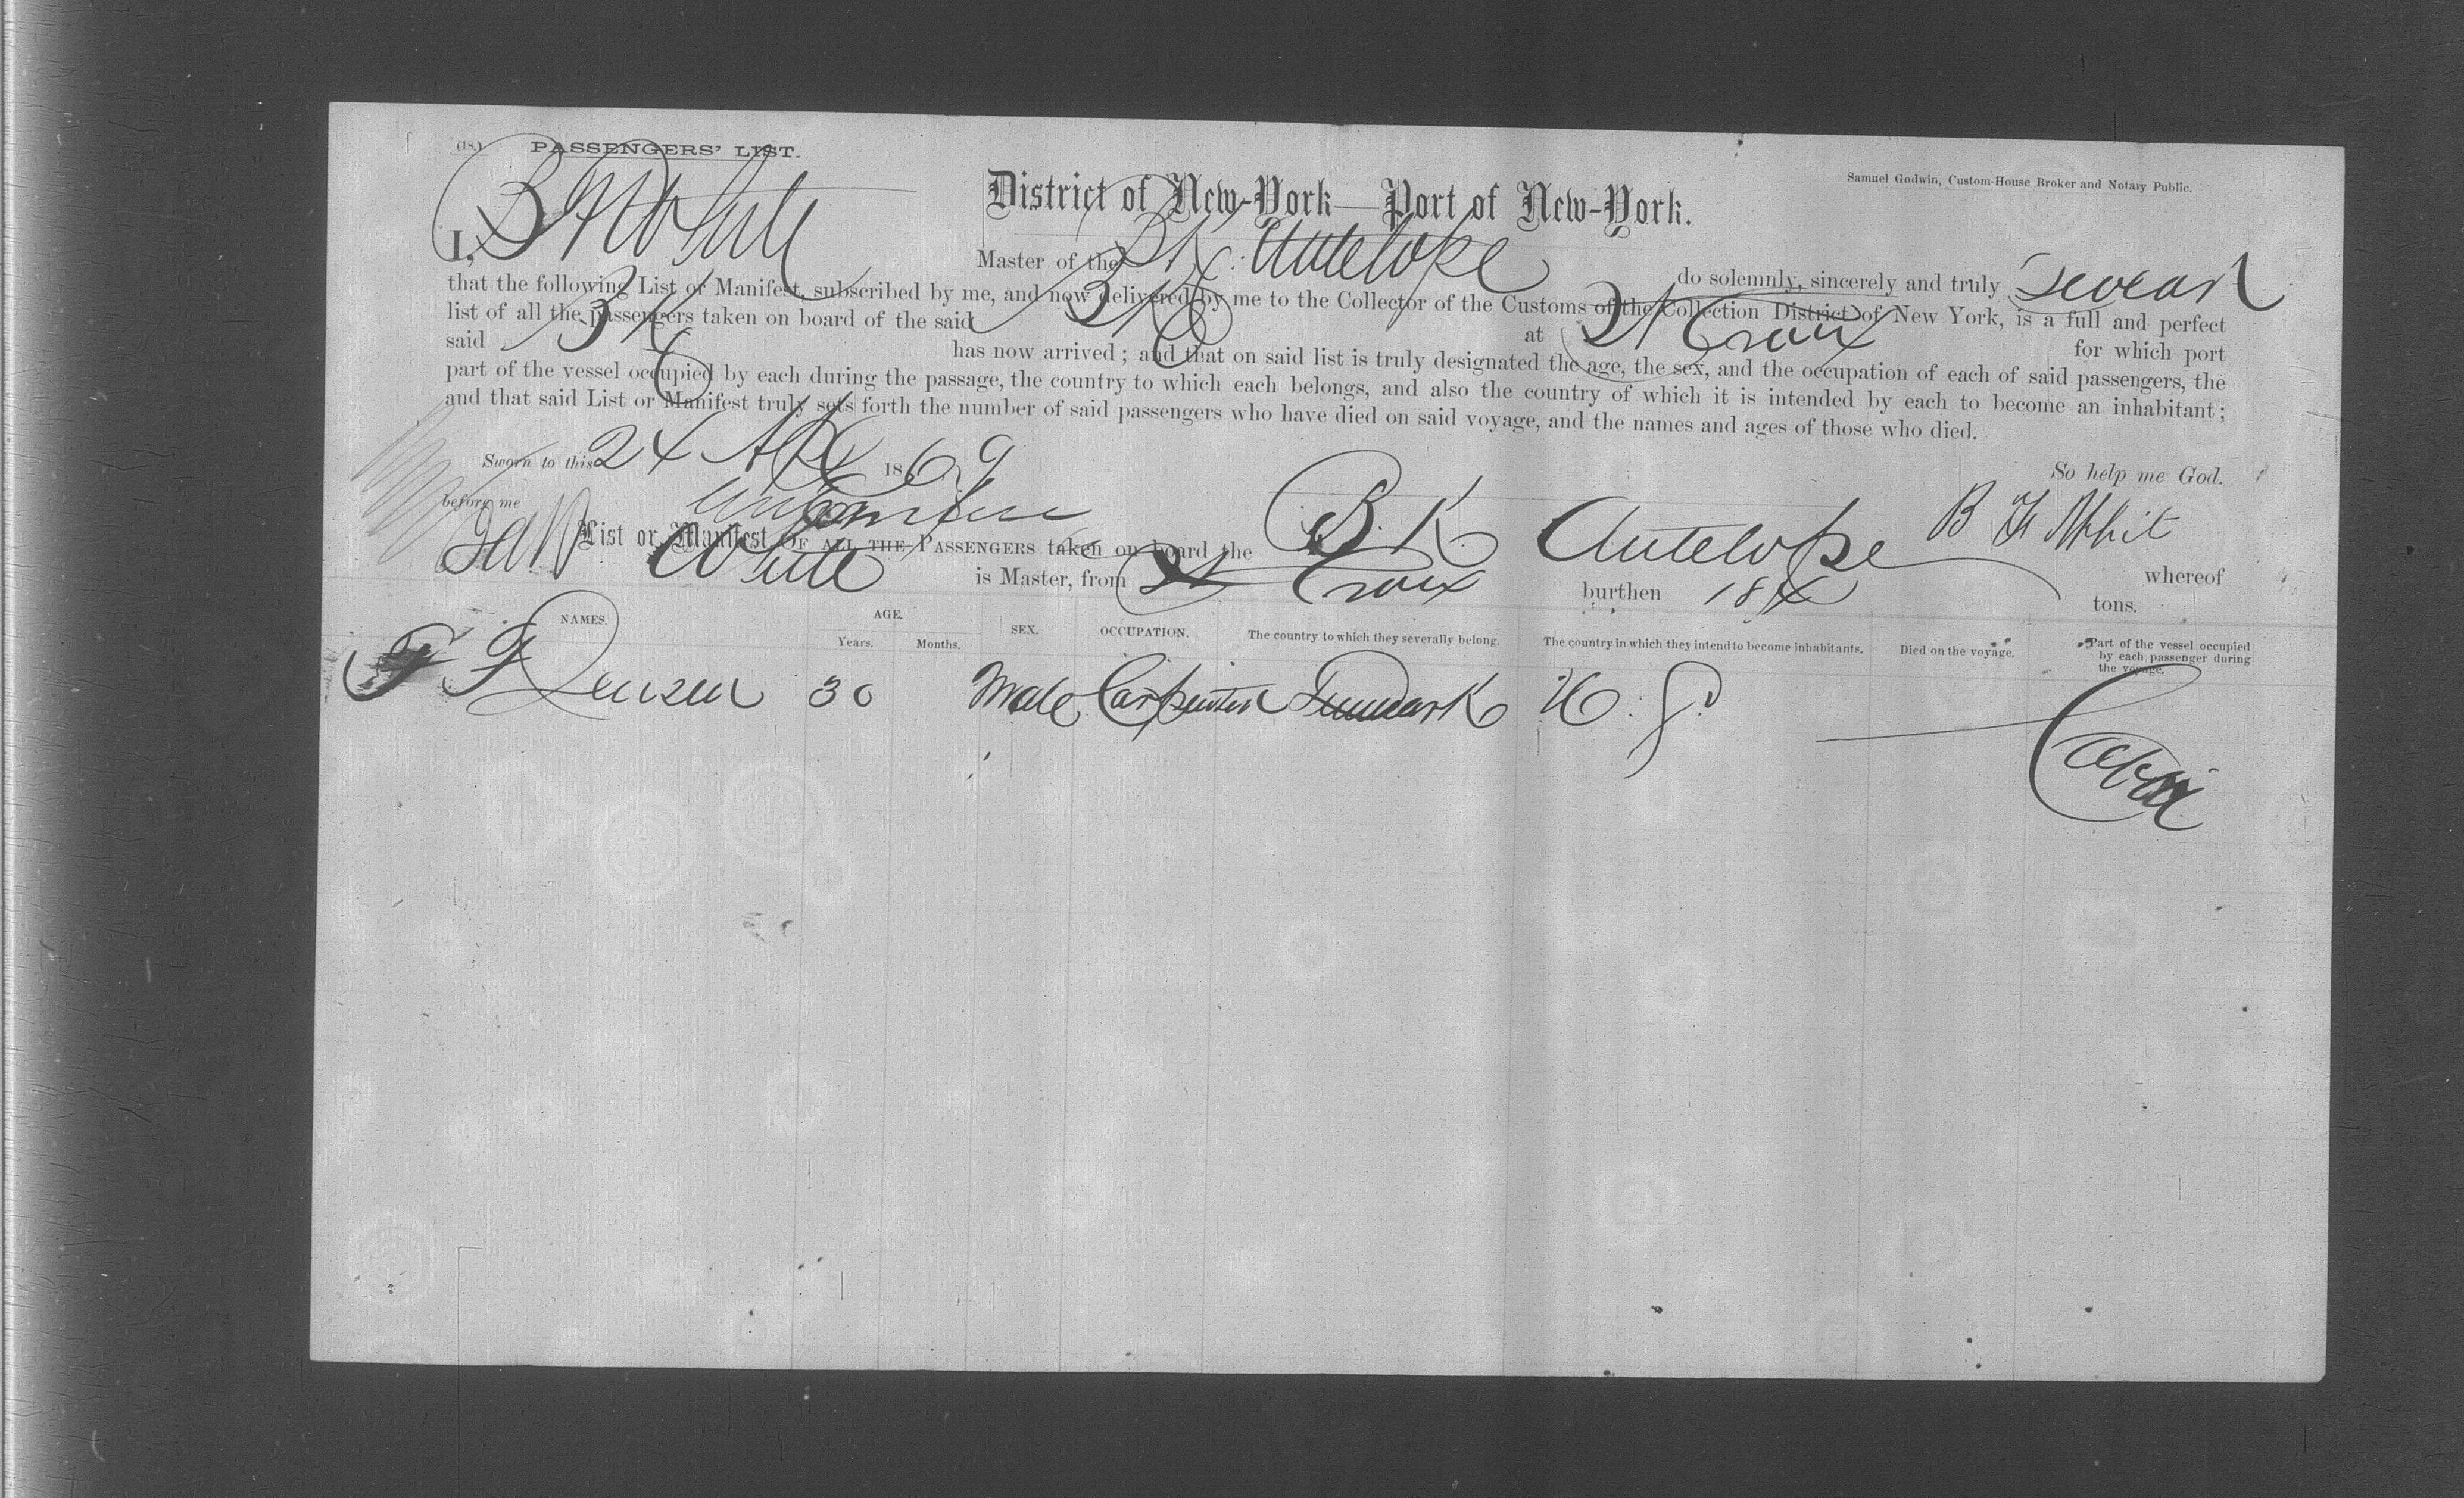 (18.) PASSENGERS' LIST.
Samuel Godwin, Custom-House Broker and Notary Public.
District of New-York—Port of New-York.
I, B F White Master of the Bk. Antelope do solemnly, sincerely and truly swear
that the following List or Manifest, subscribed by me, and now delivered by me to the Collector of the Customs of the Collection District of New York, is a full and perfect
list of all the passengers taken on board of the said Bk at St Croix for which port
said Bk has now arrived; and that on said list is truly designated the age, the sex, and the occupation of each of said passengers, the
part of the vessel occupied by each during the passage, the country to which each belongs, and also the country of which it is intended by each to become an inhabitant;
and that said List or Manifest truly sets forth the number of said passengers who have died on said voyage, and the names and ages of those who died.
Sworn to this 24 Apl 1869 So help me God.
before me B F Whit
List or Manifest OF ALL THE PASSENGERS taken on board the BK Antelope whereof
White is Master, from St Croix burthen tons.
NAMES. AGE. Years. Months. SEX. OCCUPATION. The country to which they severally belong. The country in which they intend to become inhabitants. Died on the voyage. Part of the vessel occupied by each passenger during the voyage.
F Jensen 30 Male Carpenter Denmark U. S. Cabin